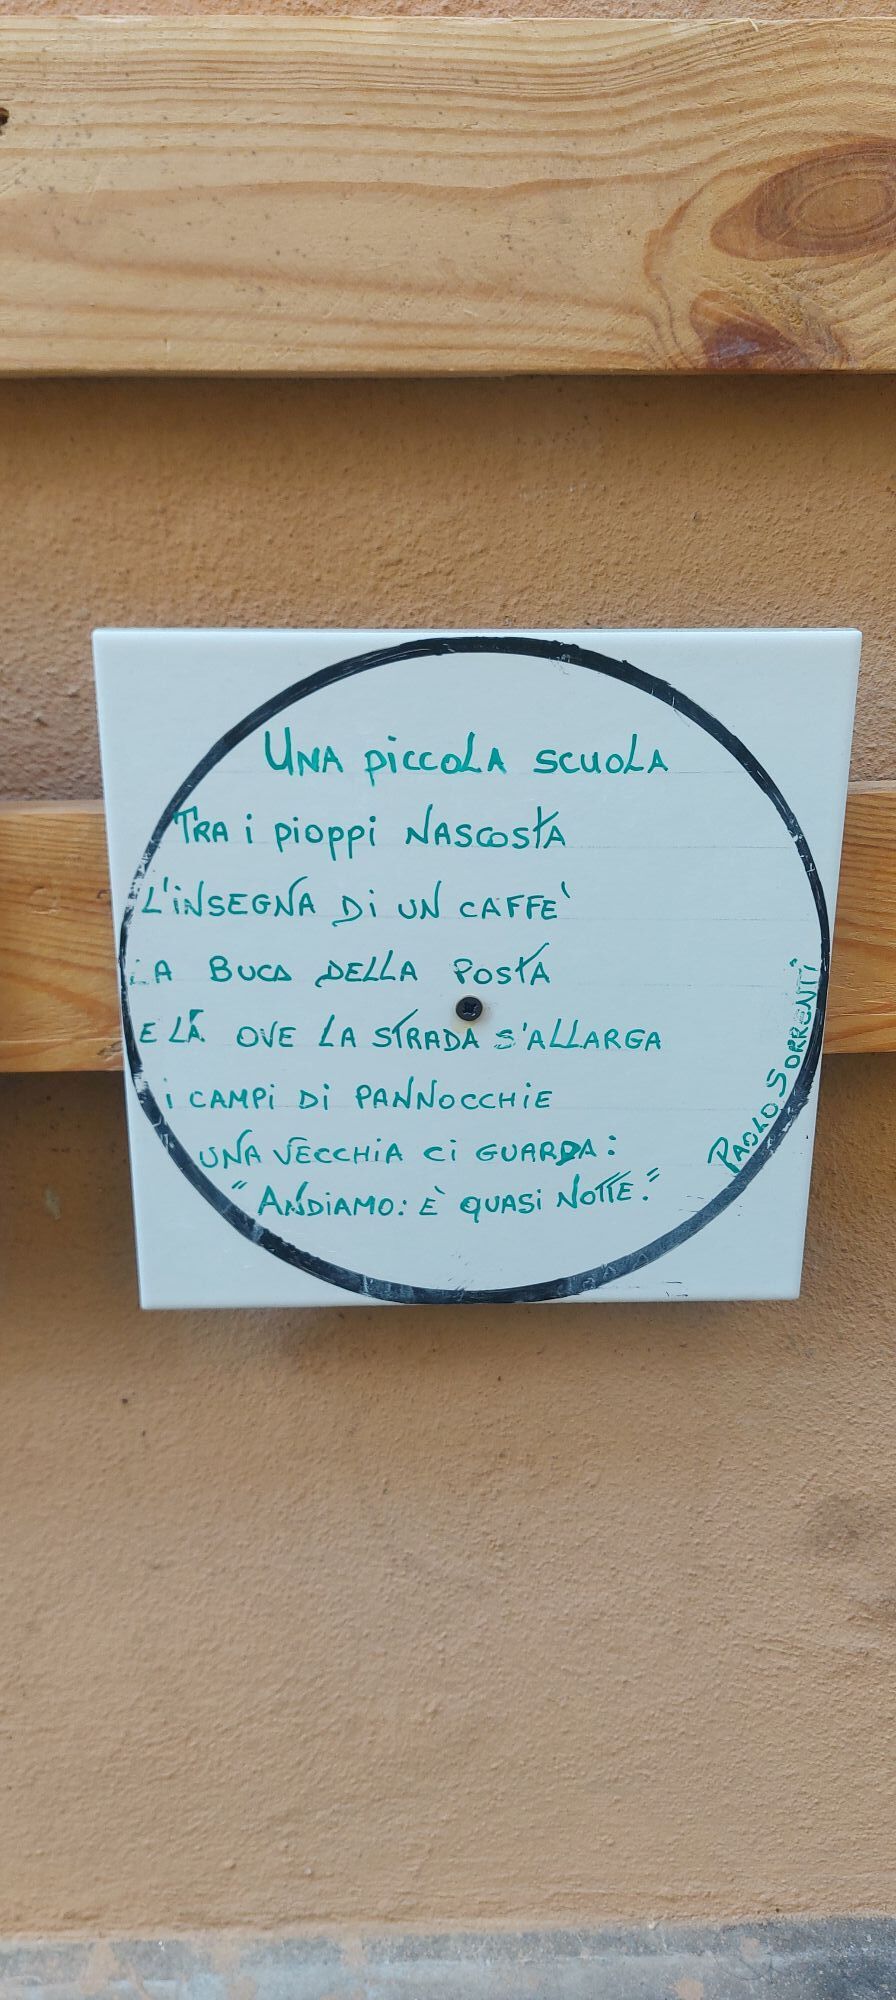 UNA piccoLA scuoLA
TRA i pioppi NASCOSTA
L'iNSEGNA Di UN CAFFE'
LA BUCA DELLA POSTA
E LÀ OVE LA STRADA S'ALLARGA
i CAMPi Di PANNOCCHiE
UNA VECCHiA Ci GUARDA:
"ANDiAMO: È QUASi NOTTE."
PAOLO SORRENTi